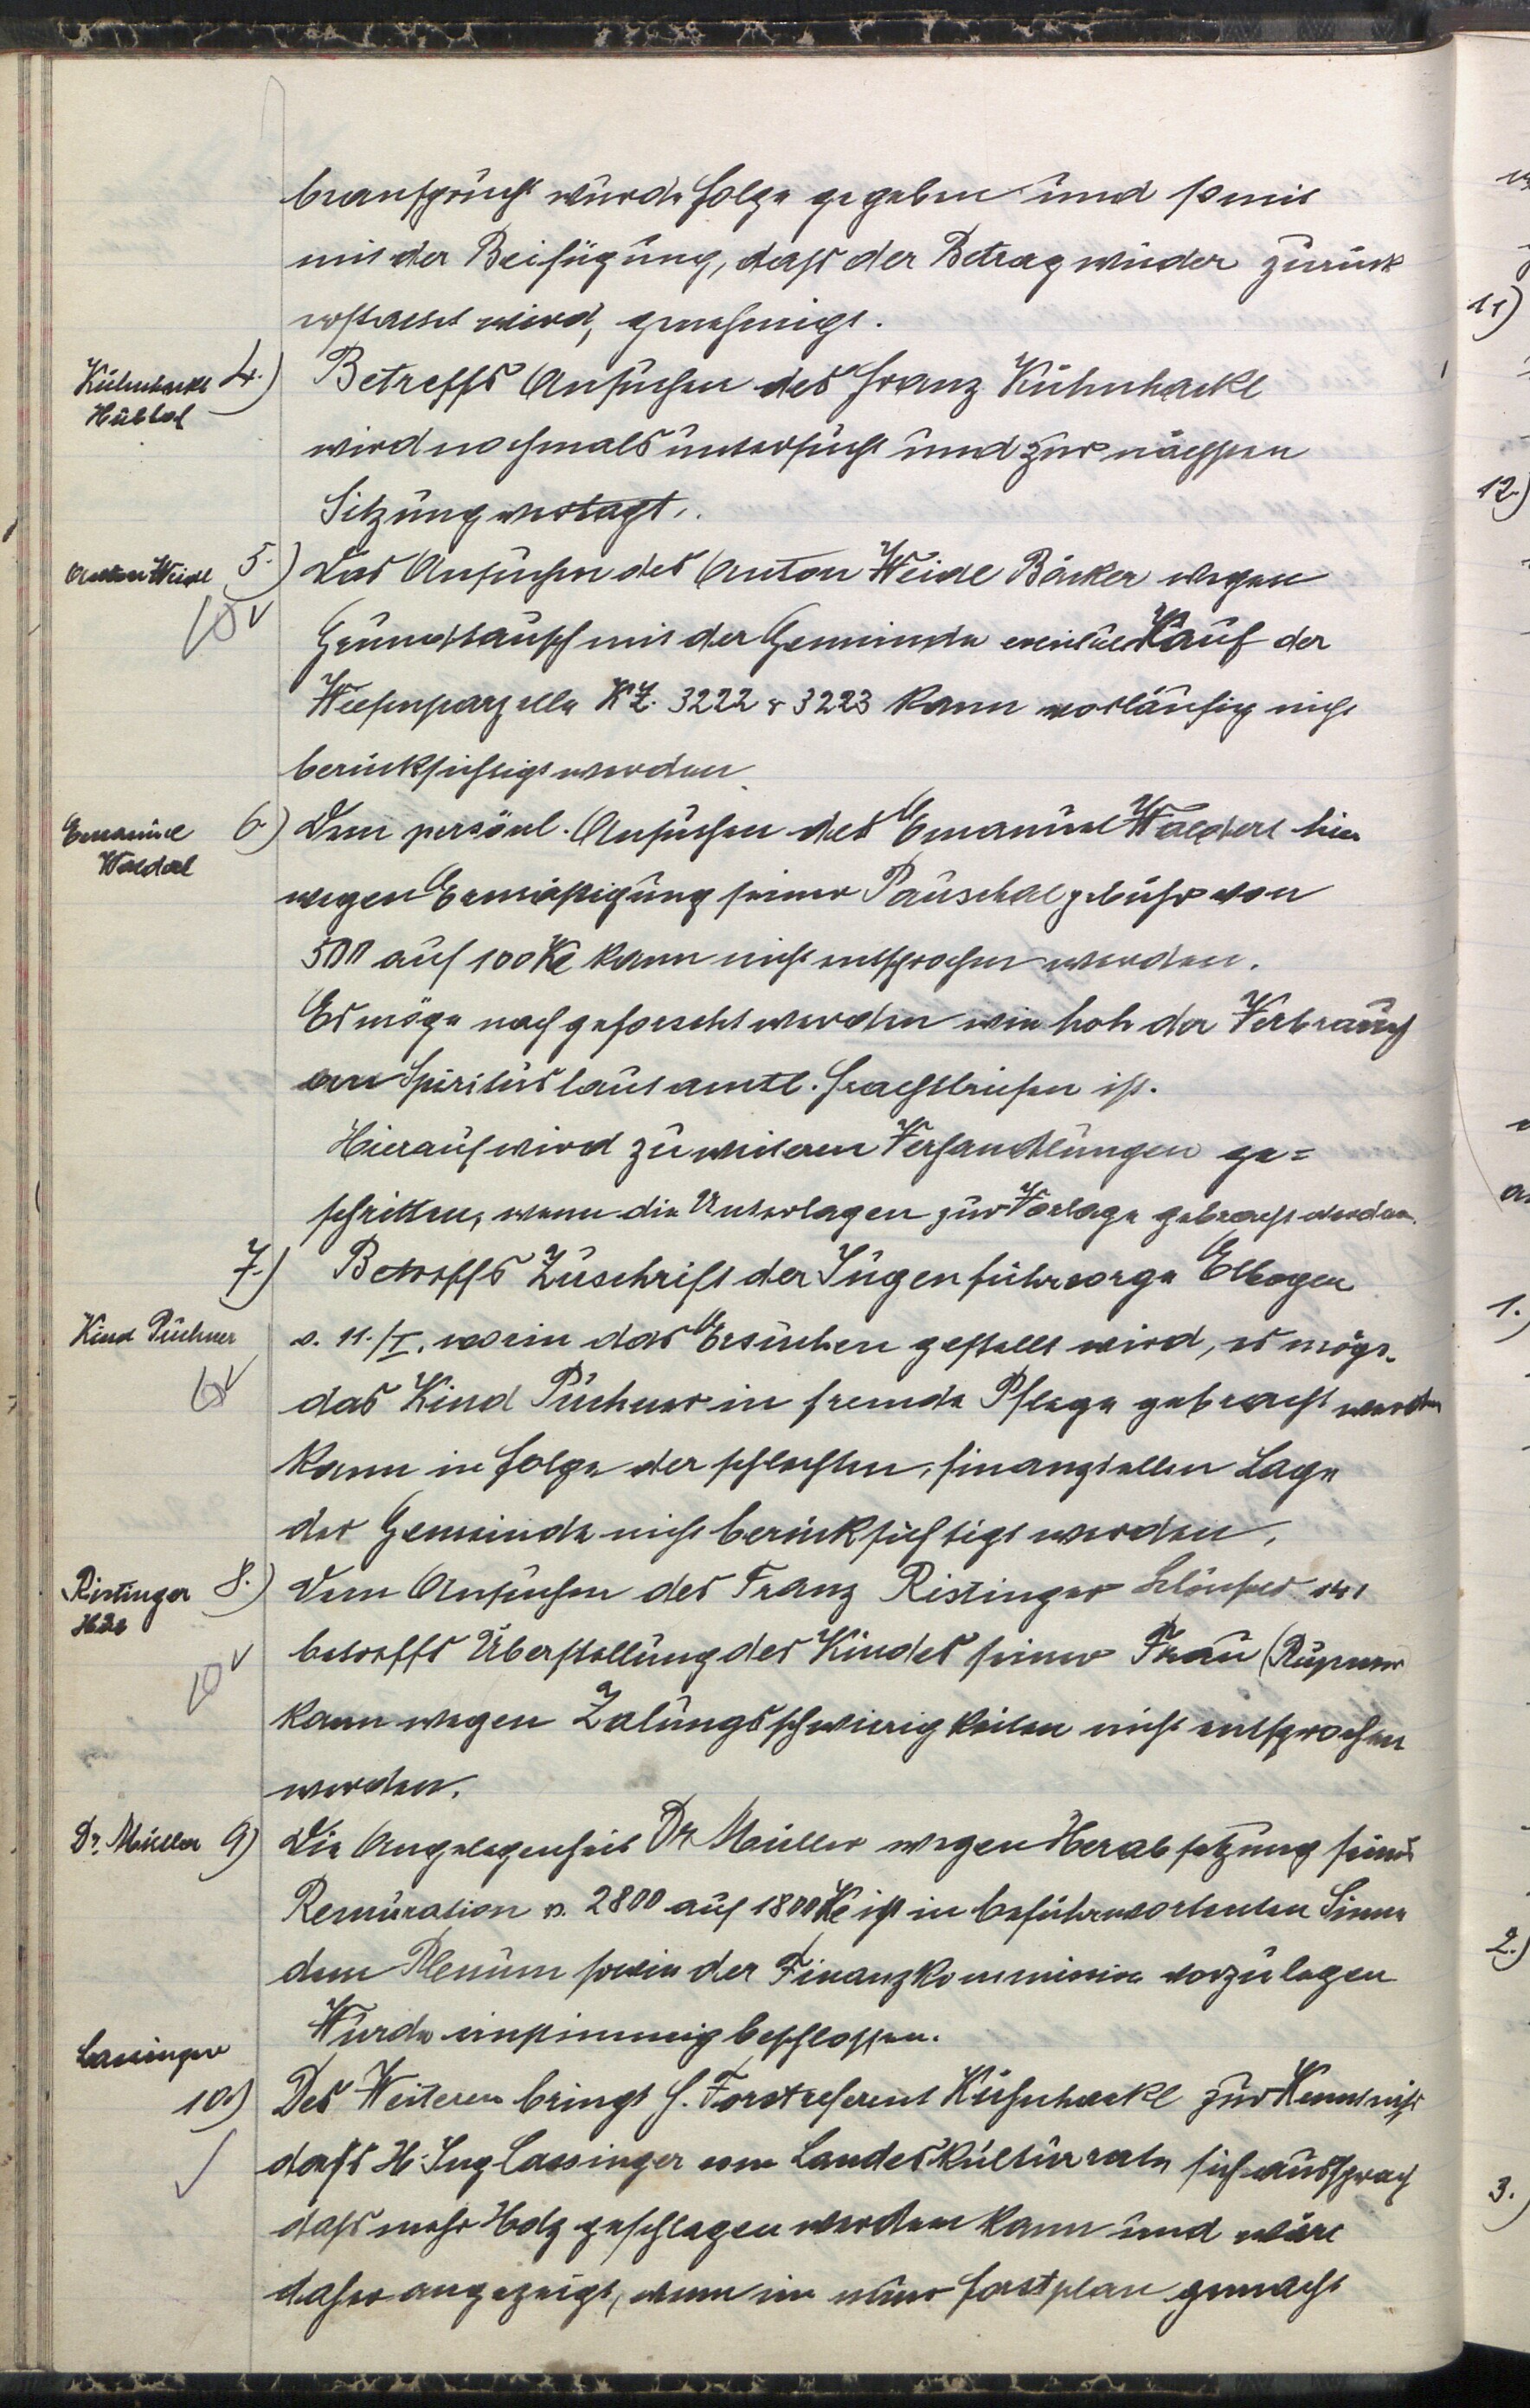 beansprucht wurde folge gegeben und somit
mit der Beifügung, dass der Betrag wieder zurück
erstattet wird, genehmigt.
Kühnhackl 4.) Betreffs Ansuchen des Franz Kühnhackl
wird nochmals untersucht und zur nächsten
Sitzung vertagt.
Anton Weidl 5.) Das Ansuchen des Anton Weidl Bäcker wegen
Grundtausch mit der Gemeinde eventuel Kauf der
Wiesenparzelle KZ. 3222 & 3223 kann vorläufig nicht
berücksichtigt werden
Emanuel 6.) Dem persönl. Ansuchen des Emanuel Walderl hier
wegen Ermäßigung seiner Pauschalgebühr von
500 auf 100 Kč kann nicht entsprochen werden.
Es möge nachgeforscht werden wie hoh der Verbrauch
an Spiritus laut amtl. Frachtbriefen ist.
Hierauf wird zu weiteren Verhandlungen ge=
schritten, wenn die Unterlagen zur Vorlage gebracht werden.
7.) Betreffs Zuschrift der Jugenführsorge Elbogen
Kind Püchner v. 11./I. worin das Ersuchen gestellt wird, es möge
das Kind Püchner in fremde Pflege gebracht werden
kann in folge der schlechten, finanziellen Lage
der Gemeinde nicht berücksichtigt werden.
Ristinger 8.) Dem Ansuchen des Franz Ristinger
betreffs Überstellung des Kindes seiner Frau
kann wegen Zalungsschwierigkeiten nicht entsprochen
werden.
Dr. Müller 9) Die Angelegenheit Dr Müller wegen Herabsetzung seiner
Remuration v. 2800 auf 1800 Kč ist in beführwortenten Sinne
dem Plenum sowie der Finanzkommission vorzulegen
Wurde einstimmig beschlossen.
Lassinger
10.) Des Weiteren bringt H. Forstreferent Kühnhackl zur Kenntniss
dass H. Ing Lassinger vom Landeskulturrate sich aussprach
dass mehr Holz geschlagen werden kann und wäre
daher angezeigt, wenn ein neuer forstplan gemacht
11)
12.)
1.)
2.)
3.)